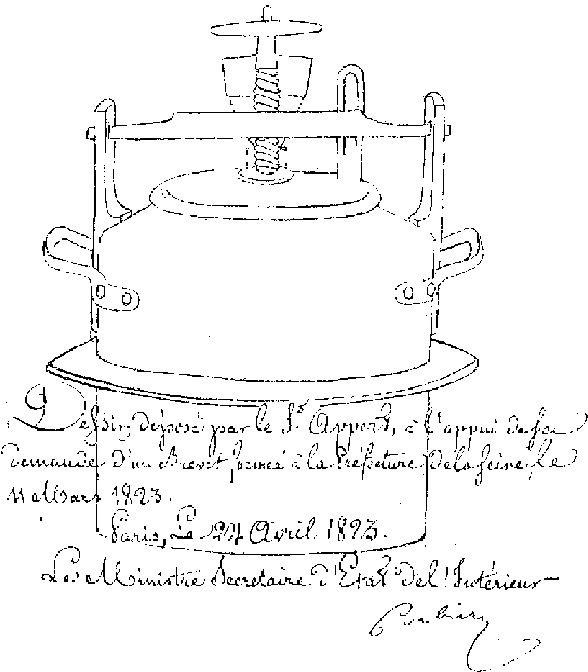 Dessin déposé par le Sr. Appert, à l'appui de sa
demande d'un Brevet, formée à la Préfecture de la Seine, le
11 Mars 1823.
Paris, Le 24 Avril 1823.
Le Ministre Secrétaire d'Etat de l'Intérieur